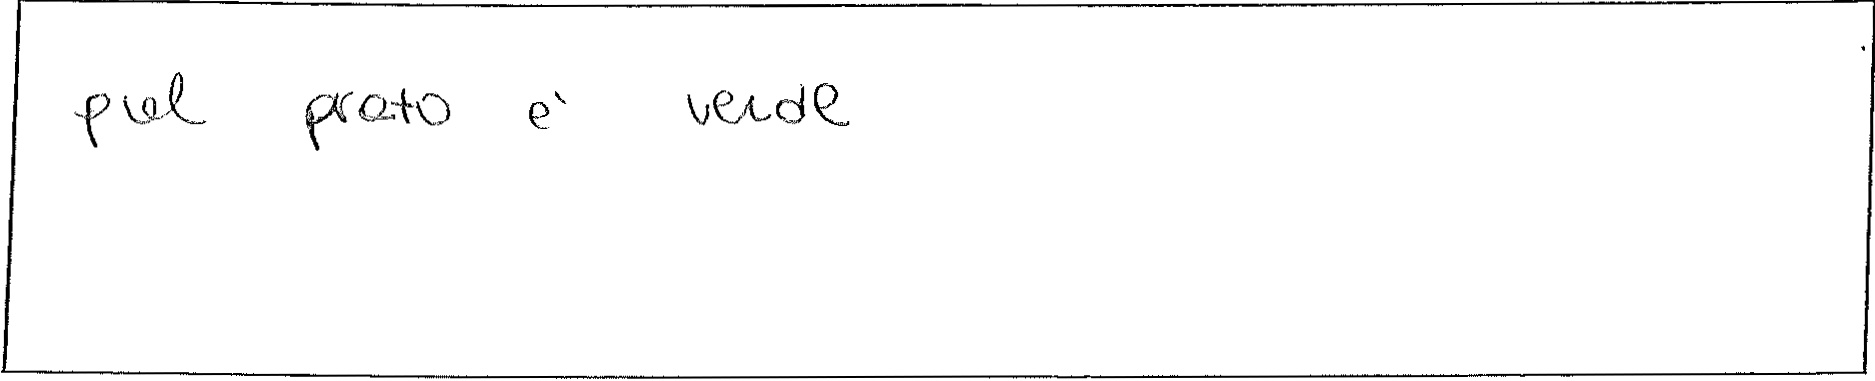 piel prato è verde